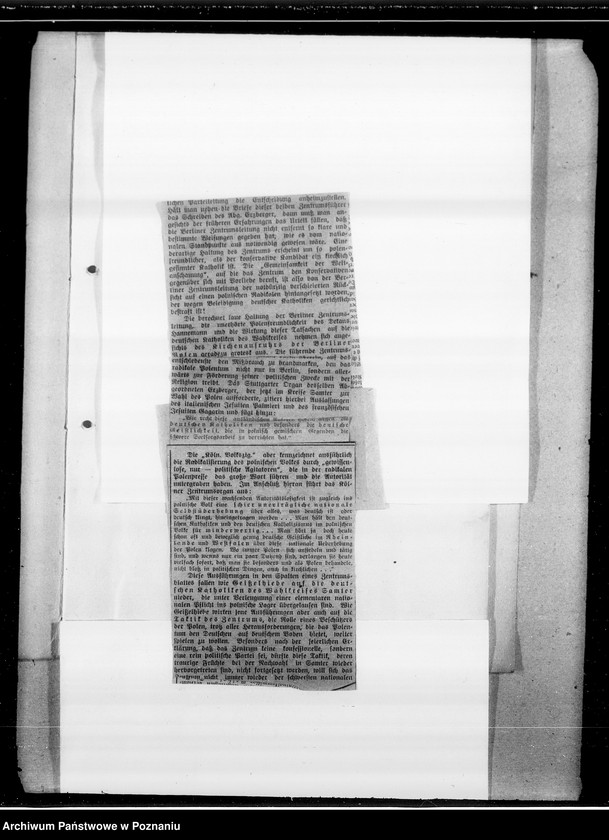 lichen Parteileitung die Entscheidung anheimzustellen.
Hält man neben die Briefe dieser beiden Zentrumsführer
das Schreiben des Abg. Erzberger, dann muß man an-
gesichts der früheren Erfahrungen das Urteil fällen, daß
die Berliner Zentrumsleitung nicht entfernt so klare und
bestimmte Weisungen gegeben hat, wie es vom natio-
nalen Standpunkte aus notwendig gewesen wäre. Eine
derartige Haltung des Zentrums erscheint um so polen-
freundlicher, als der konservative Kandidat ein kirchlich
gesinnter Katholik ist. Die „Gemeinsamkeit der Welt-
anschauung", auf die das Zentrum den Konservativen
gegenüber sich mit Vorliebe beruft, ist also von der Ber-
liner Zentrumsleitung der notdürftig verschleierten Rück-
sicht auf einen polnischen Radikalen hintangesetzt worden,
der wegen Beleidigung deutscher Katholiken gerichtlich
bestraft ist!
Die berechnet laue Haltung der Berliner Zentrums-
leitung, die unerhörte Polenfreundlichkeit des Dekans
und die Wirkung dieser Tatsachen auf die
deutschen Katholiken des Wahlkreises nehmen sich ange-
sichts des Kirchenaufruhrs der Berliner
Polen geradezu grotesk aus. Die führende Zentrums-
entschiedenste den Mißbrauch zu brandmarken, den das
radikale Polentum nicht nur in Berlin, sondern aller-
wärts zur Förderung seiner politischen Zwecke mit der
Religion treibt. Das Stuttgarter Organ desselben Ab-
geordneten Erzberger, der jetzt im Kreise Samter zur
Wahl des Polen aufforderte, zitiert hierbei Auslassungen
des italienischen Jesuiten Palmieri und des französischen
Jesuiten Gagarin und fügt hinzu:
deutschen Katholiken und besonders die deutsche
Geistlichkeit, die in polnisch gemischten Gegenden die
schwere Seelsorgsarbeit zu verrichten hat."
Die „Köln. Volksztg." aber kennzeichnet ausführlich
die Radikalisierung des polnischen Volkes durch „gewissen-
lose, nur — politische Agitatoren", die in der radikalen
Polenpresse das große Wort führen und die Autorität
untergraben haben. Im Anschluß hieran führt das Köl-
ner Zentrumsorgan aus:
„Mit dieser wachsenden Autoritätslosigkeit ist zugleich ins
polnische Volk eine schier unerträgliche nationale
Selbstüberhebung über alles, was deutsch ist oder
deutsch klingt, hineingetragen worden . . . Man hält den deut-
schen Katholiken und den deutschen Katholizismus im polnischen
Volke für minderwertig . . . Man hört ja doch heute
schon oft und beweglich genug deutsche Geistliche im Rhein-
lande und Westfalen über diese nationale Ueberhebung
der Polen klagen. Wo immer Polen sich ansiedeln und tätig
sind, und wenns nur ein paar Dutzend sind, verlangen sie heute
vielfach sofort, daß man sie besonders und als Polen behandele,
nicht bloß in politischen Dingen, auch in kirchlichen . . ."
Diese Ausführungen in den Spalten eines Zentrums-
blattes sausen wie Geißelhiebe auf die deut-
schen Katholiken des Wahlkreises Samter
nieder, die unter Verleugnung einer elementaren natio-
nalen Pflicht ins polnische Lager übergelaufen sind. Wie
Geißelhiebe wirken jene Ausführungen aber auch auf die
Taktik des Zentrums, die Rolle eines Beschützers
der Polen, trotz aller Herausforderungen, die das Polen-
tum den Deutschen auf deutschem Boden bietet, weiter
spielen zu wollen. Besonders nach der feierlichen Er-
klärung, daß das Zentrum keine konfessionelle, sondern
eine rein politische Partei sei, dürfte diese Taktik, deren
traurige Früchte bei der Nachwahl in Samter wieder
hervorgetreten sind, nicht fortgesetzt werden, will sich das
Zentrum nicht immer wieder der schwersten nationalen
Archiwum Państwowe w Poznaniu